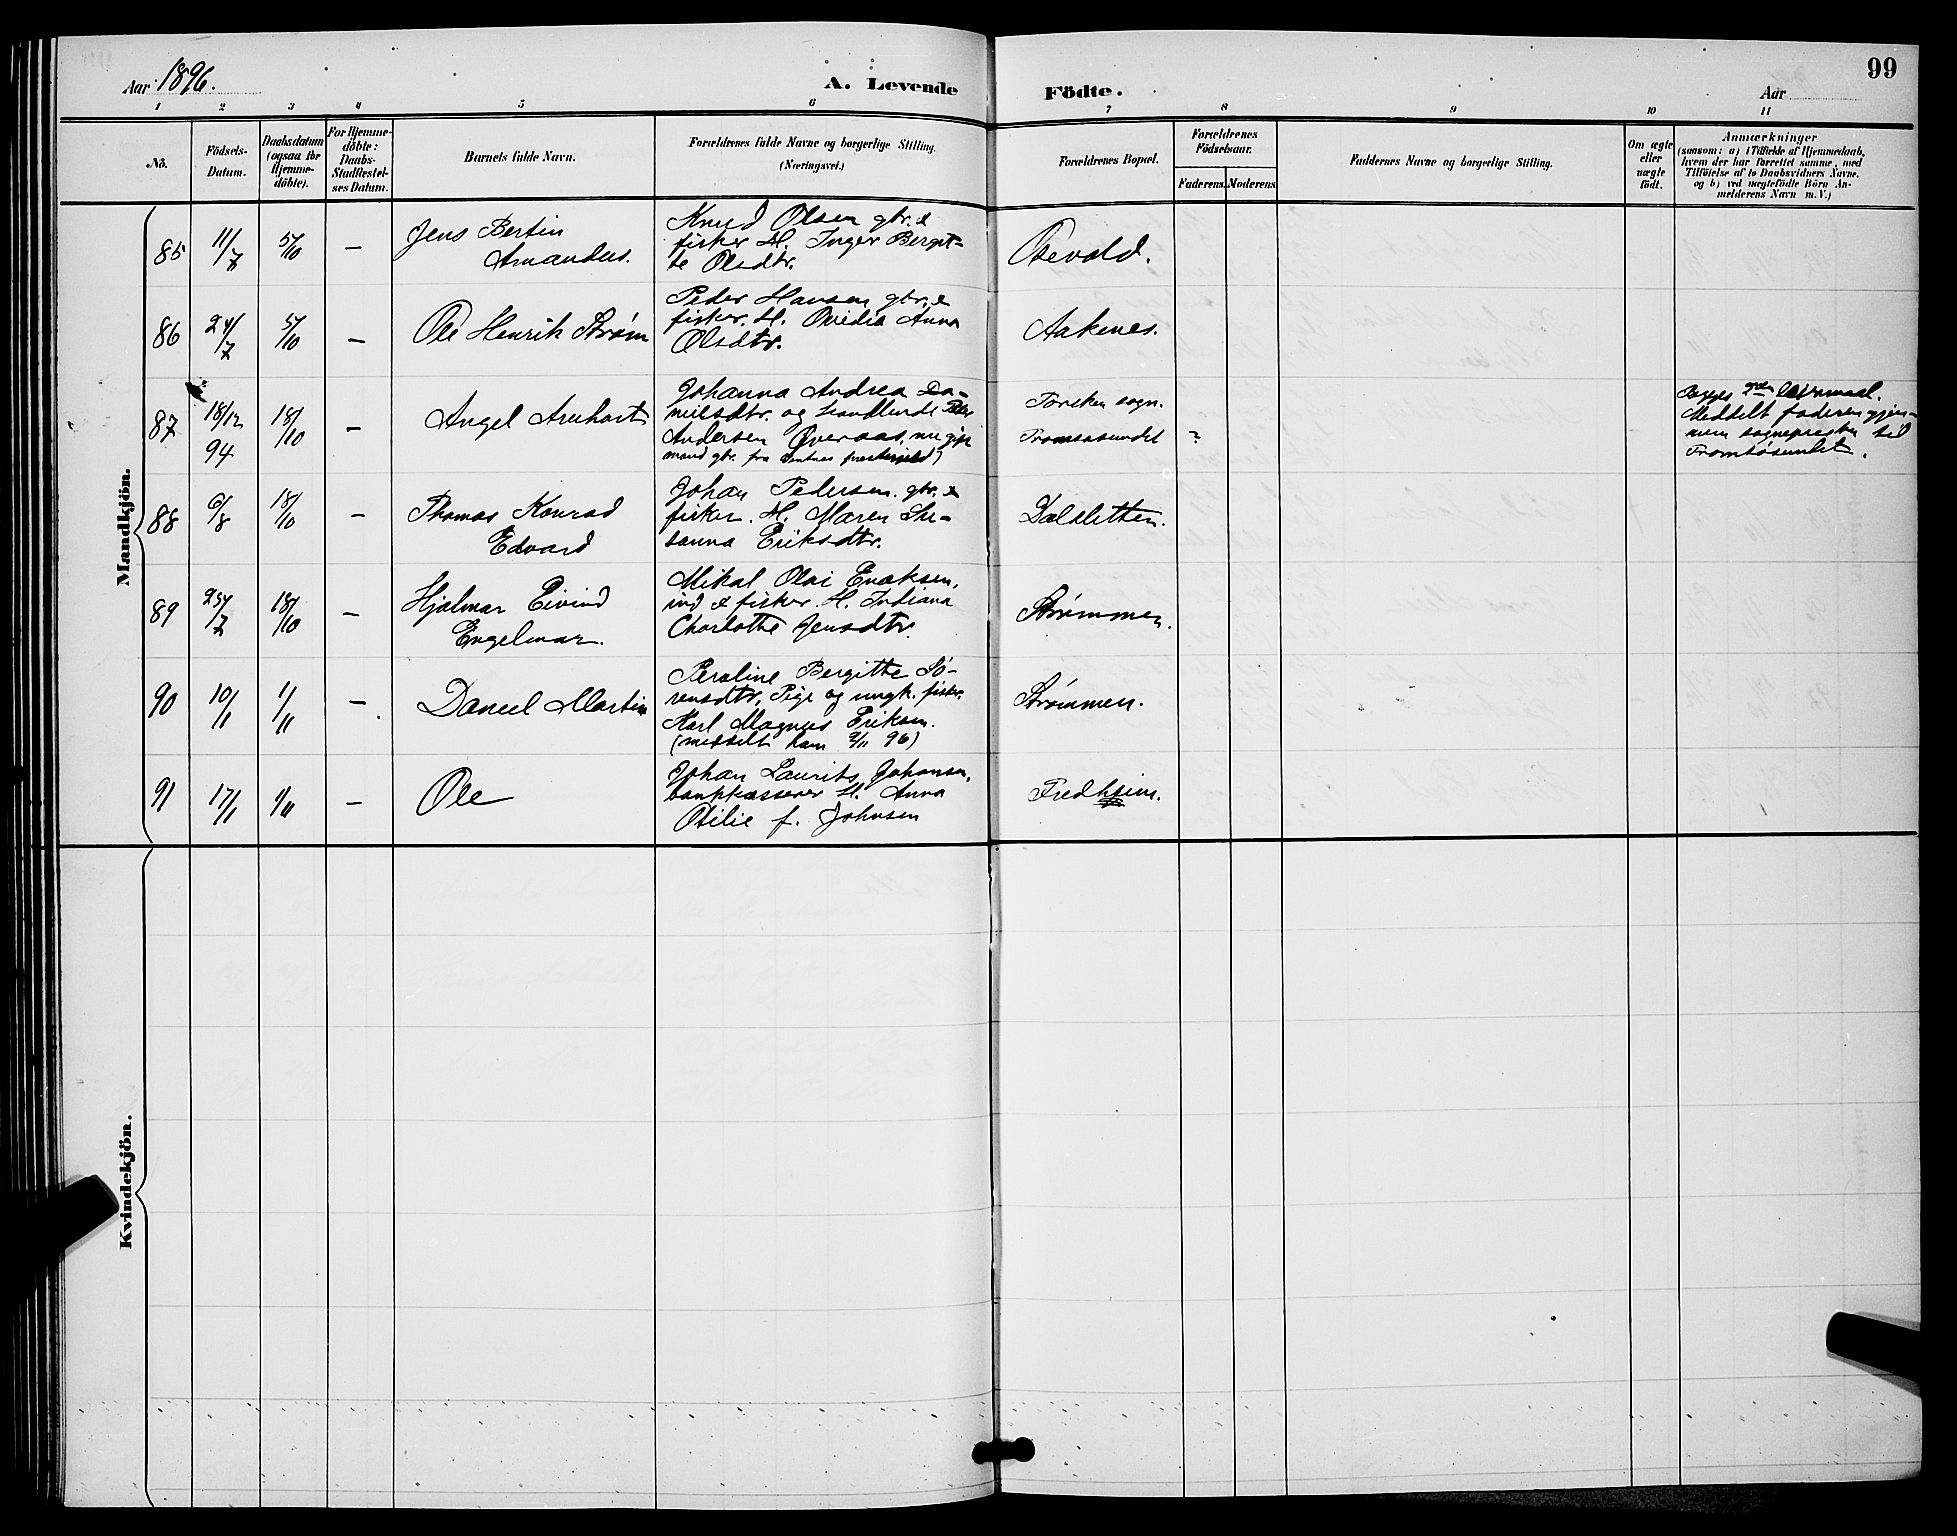 Aar 1896.
A. Levende
Födte.
Aar
99
1 2 3 4 5 6 7 8 9 10 11
No.
Födsels-
Datum.
Daabsdatum
(ogsaa for
Hjemme-
döbte).
For Hjemme-
döbte:
Daabs-
Stadfestel-
ses Datum.
Barnets fulde Navn.
Forældrenes fulde Navne og borgerlige Stilling.
(Næringsvei.)
Forældrenes Bopæl.
Forældrenes
Födselsaar.
Faderens. Moderens.
Faddernes Navne og borgerlige Stilling.
Om ægte
eller
uægte
födt.
Anmærkninger
(saasom: a) i Tilfælde af Hjemmedaab,
hvem der har forrettet samme, med
Tilföielse af to Daabsvidners Navne.
og b) ved uægtefödte Börn An-
melderens Navn m. V.)
Mandkjön.
85 11/7 5/10 — Jens Bertin
Amandus.
Knud Olsen gbr. &
fisker H. Inger Bergit-
te Olsdtr.
Osevold.
86 24/7 5/10 — Ole Henrik Strøm
Peder Hansen gbr. &
fisker. H. Ovidia Anna
Olsdtr.
Aakenes.
87 18/12 94 18/10 — Angel Arnhart
Johanna Andrea Da-
nielsdtr. og handlende Peder
Andersen Øveraas, nu gift
mand gbr. fra prestegjeld)
Torsken sogn.
Tromsøsundet ?
lejermaal.
Meddelt faderen gjen-
nem sognepresten til
Tromsøsundet.
88 6/8 18/10 — Thomas Konrad
Edvard
Johan Pedersen. gbr. &
fisker. H. Maren Su-
sanna Eriksdtr.
Dalslitten.
89 25/7 18/10 — Hjalmar Eivind
Engelmar.
Mikal Olai Enoksen,
ind & fisker. H. Indiana
Charlotte Jensdtr.
Strømmen.
90 10/1 1/11 — Daniel Martin
Peroline Bergitte Sø-
rensdtr, Pige og ungk. fisker.
Karl Magnus Eriksen.
(meddelt ham 2/11 96)
Strømmen.
91 17/1 1/11 — Ole
Johan Laurits Johansen,
bankkasserer H. Anna
Otilie f. Johnsen
Fredheim.
Kvindekjön.